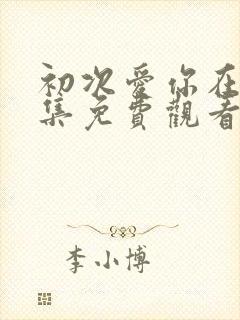 初次愛你在
集免費觀看
李小博